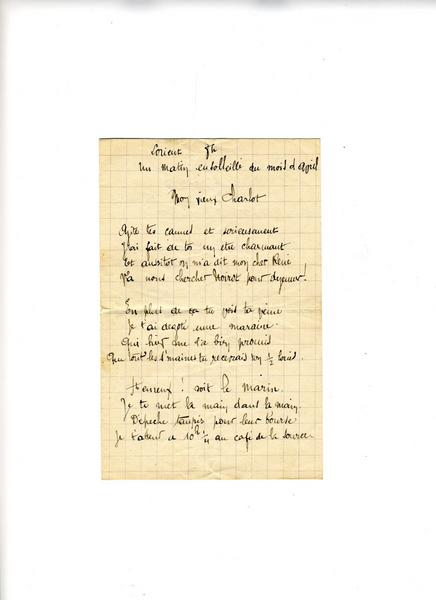 Lorient 8h
Un matin ensolleillé du mois d'avril
Mon vieux Charlot
tes cannes et sérieusement
J'ai fait de toi un etre charmant
Et aussitot on m'a dit mon cher René
Va nous chercher Noirot pour dejeuner!
En plus de ça tu vois ta veine
Je t'ai degoté une maraine
Qui bien que s'ie bien promis
Que tout les s'maines tu recevrais un 1/2 louis
St heureux! soit le marin.
Je te met la main dans la main
Dépeche tanpis pour leur bourse
Je t'attend a 10h 1/4 au café de la source